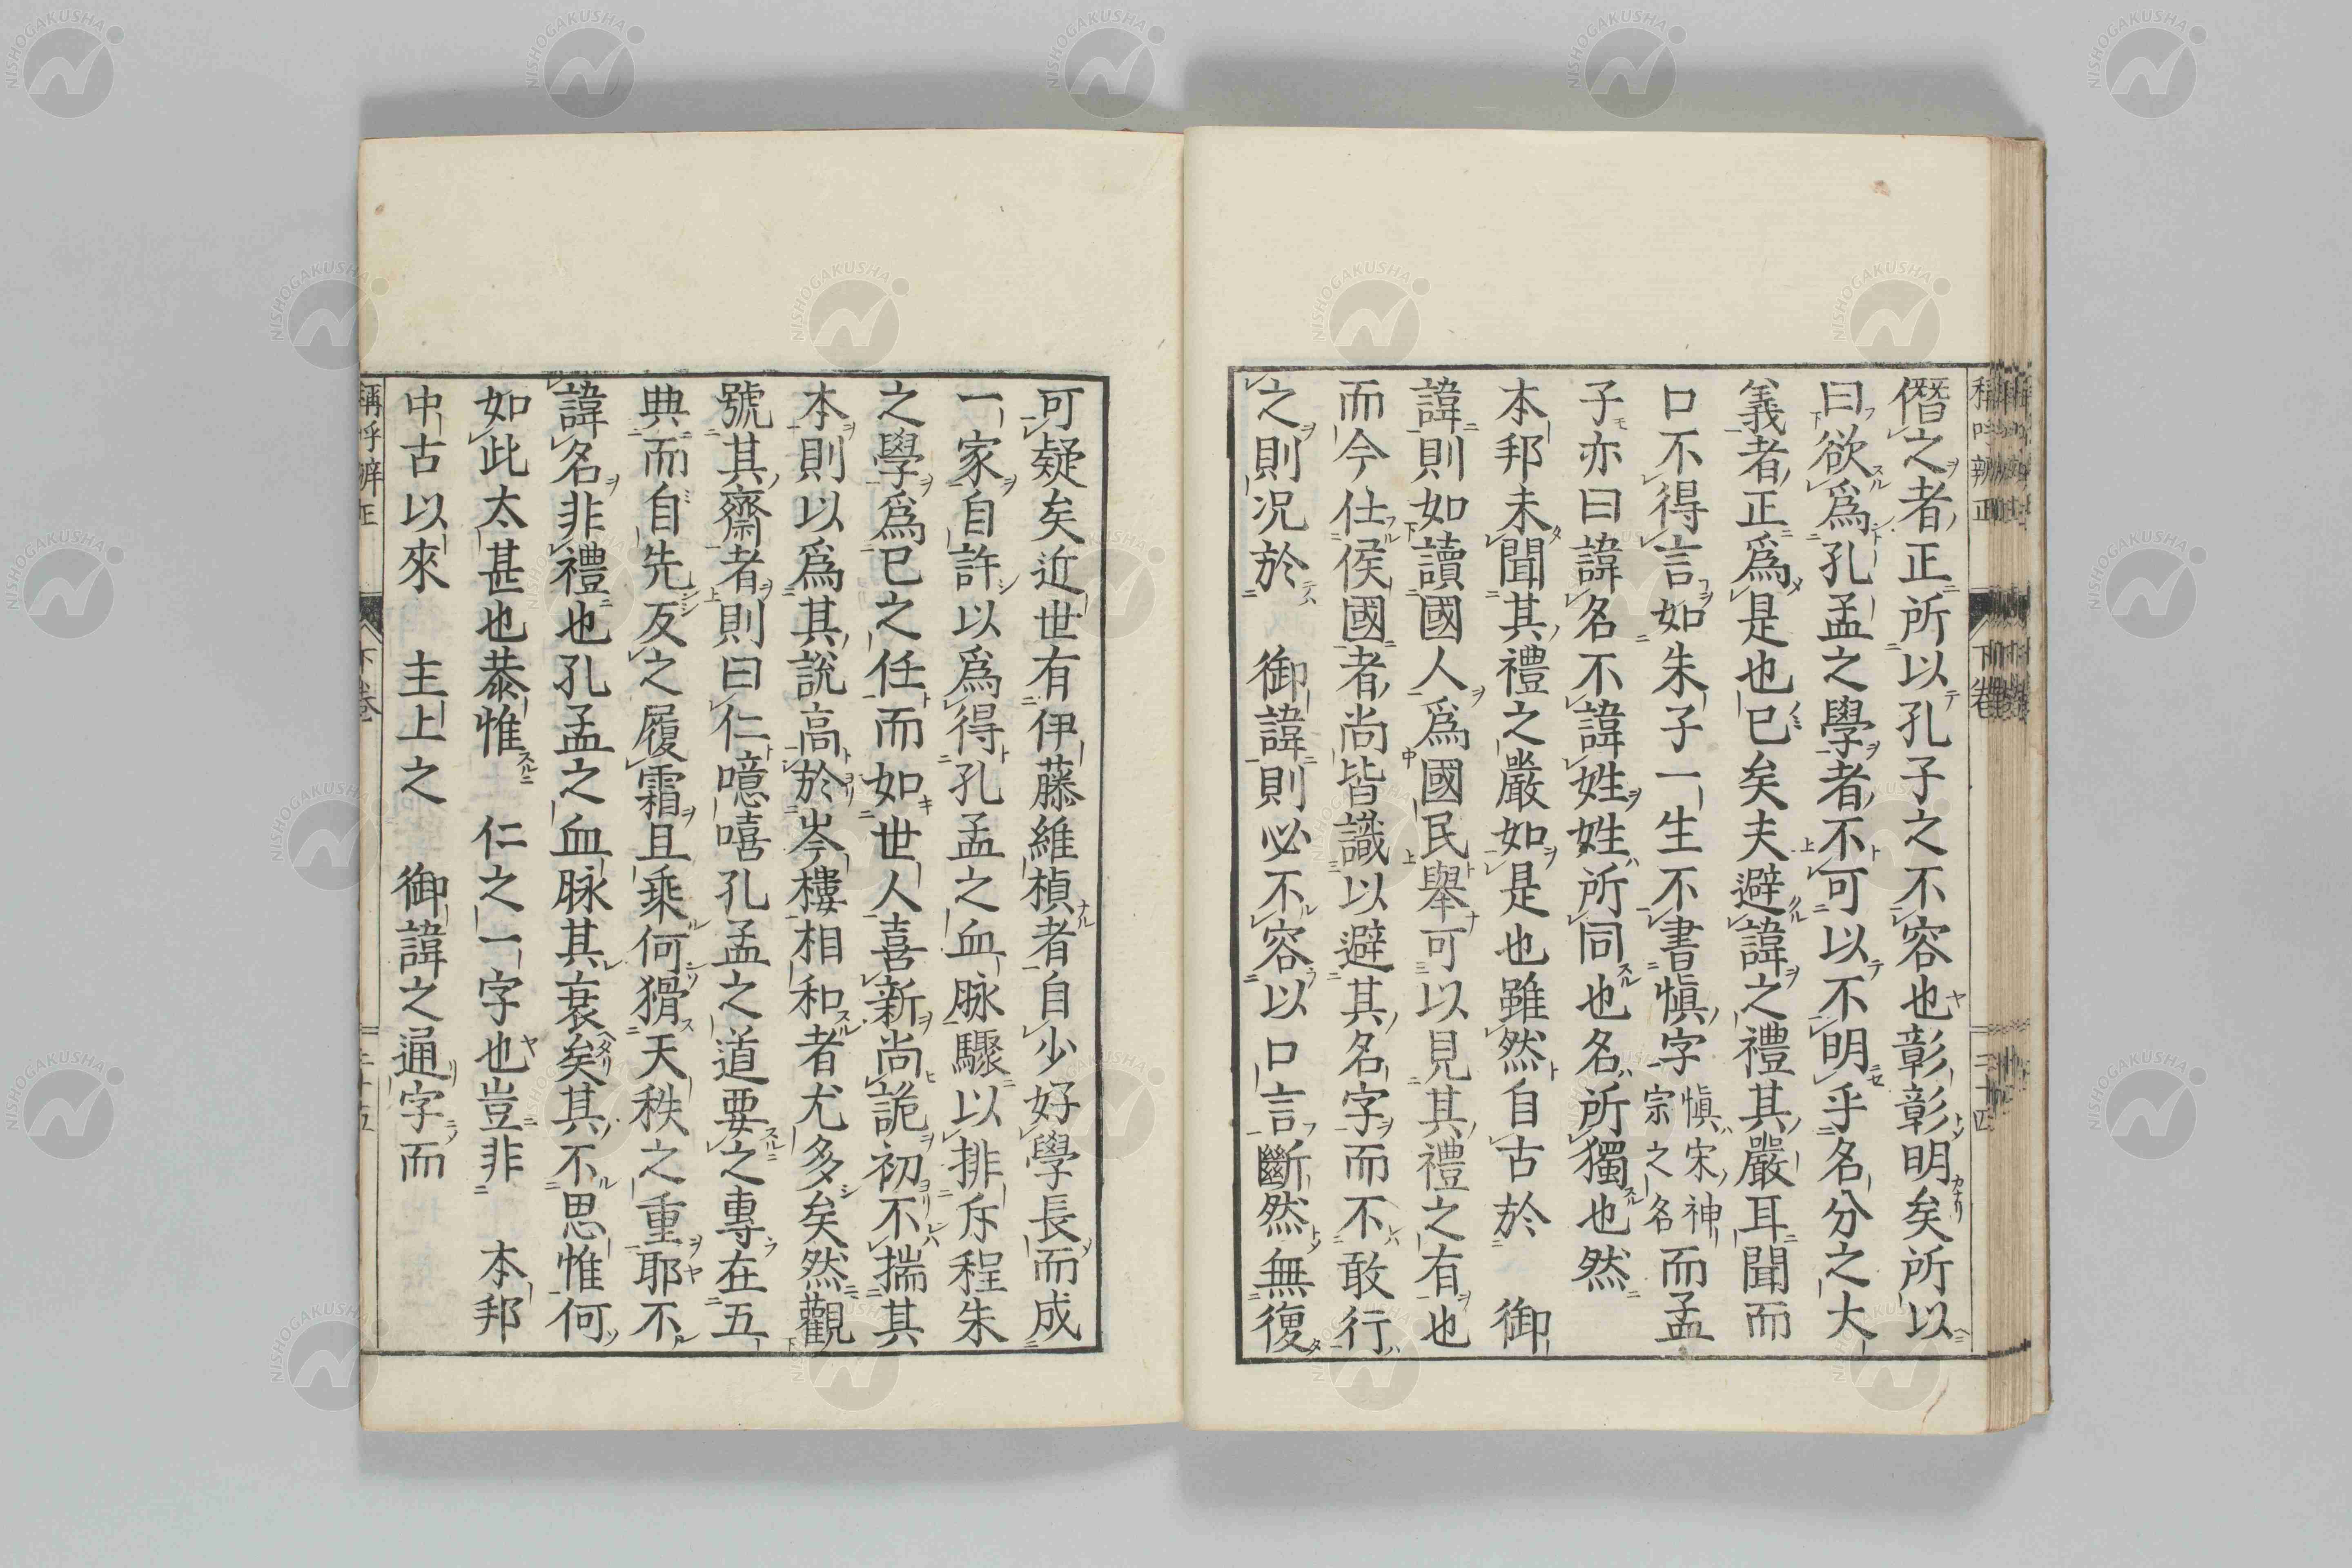 僭之者正所以孔子之不容也彰彰明矣所以
曰欲爲孔孟之學者不可以不明乎名分之大
義者正爲是也已矣夫避諱之禮其嚴耳聞而
口不得言如朱子一生不書愼字愼宋神宗之名而孟
子亦曰諱名不諱姓姓所同也名所獨也然
本邦未聞其禮之嚴如是也雖然自古於　御
諱則如讀國人爲國民舉可以見其禮之有也
而今仕侯國者尚皆識以避其名字而不敢行
之則况於　御諱則必不容以口言斷然無復
可疑矣近世有伊藤維楨者自少好學長而成
一家自許以爲得孔孟之血脉驟以排斥程朱
之學爲已之任而如世人喜新尚詭初不揣其
本則以爲其說高於岑樓相和者尤多矣然觀
號其齋者則曰仁噫嘻孔孟之道要之專在五
典而自先反之履霜且乘何猾天秩之重耶不
諱名非禮也孔孟之血脉其衰矣其不思惟何
如此太甚也恭惟　仁之一字也豈非　本邦
中古以來　主上之　御諱之通字而
稱呼辨正　下卷
NISHOGAKUSHA